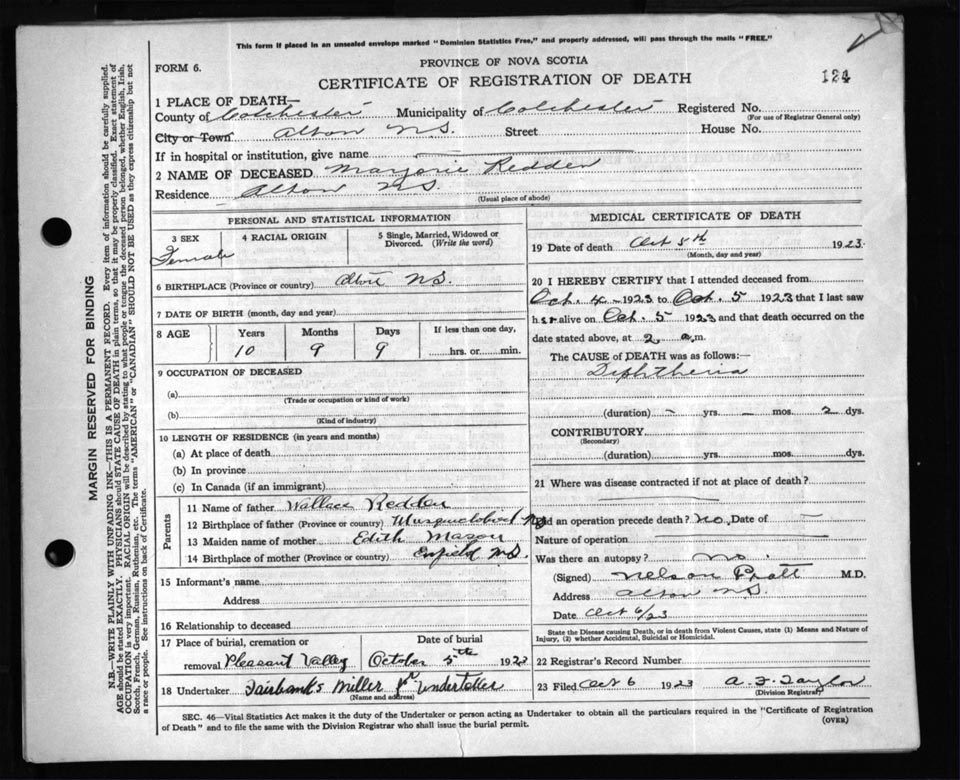 This form if placed in an unsealed envelope marked "Dominion Statistics Free," and properly addressed, will pass through the mails "FREE."
FORM 6.
PROVINCE OF NOVA SCOTIA
CERTIFICATE OF REGISTRATION OF DEATH
124
1 PLACE OF DEATH—
County of Colchester Municipality of Colchester Registered No.
(For use of Registrar General only)
City or Town Alton N.S. Street House No.
If in hospital or institution, give name
2 NAME OF DECEASED Marjorie Redden
Residence Alton N.S.
(Usual place of abode)
PERSONAL AND STATISTICAL INFORMATION
3 SEX 4 RACIAL ORIGIN 5 Single, Married, Widowed or Divorced. (Write the word)
Female
6 BIRTHPLACE (Province or country) Alton N.S.
7 DATE OF BIRTH (month, day and year)
8 AGE Years Months Days If less than one day,
10 9 9 hrs. or min.
9 OCCUPATION OF DECEASED
(a)
(Trade or occupation or kind of work)
(b)
(Kind of industry)
10 LENGTH OF RESIDENCE (in years and months)
(a) At place of death
(b) In province
(c) In Canada (if an immigrant)
Parents
11 Name of father Wallace Redden
12 Birthplace of father (Province or country) Musquodoboit N.S.
13 Maiden name of mother Edith Mason
14 Birthplace of mother (Province or country) Enfield N.S.
15 Informant's name
Address
16 Relationship to deceased
17 Place of burial, cremation or Date of burial
removal Pleasant Valley October 5th 1923
18 Undertaker Fairbanks Miller Undertaker
(Name and address)
MEDICAL CERTIFICATE OF DEATH
19 Date of death Oct 5th 1923.
(Month, day and year)
20 I HEREBY CERTIFY that I attended deceased from
Oct. 4 - 1923 to Oct. 5 1923 that I last saw
her alive on Oct. 5 1923 and that death occurred on the
date stated above, at 2 a.m.
The CAUSE of DEATH was as follows:—
Diphtheria
(duration) - yrs. - mos. 2 dys.
CONTRIBUTORY
(Secondary)
(duration) yrs. mos. dys.
21 Where was disease contracted if not at place of death?
Did an operation precede death? no. Date of —
Nature of operation
Was there an autopsy? no.
(Signed) Nelson Pratt M.D.
Address Alton N.S.
Date Oct 6/23
State the Disease causing Death, or in death from Violent Causes, state (1) Means and Nature of
Injury, (2) whether Accidental, Suicidal or Homicidal.
22 Registrar's Record Number
23 Filed Oct 6 1923 A. F. Taylor
(Division Registrar)
SEC. 46—Vital Statistics Act makes it the duty of the Undertaker or person acting as Undertaker to obtain all the particulars required in the "Certificate of Registration
of Death" and to file the same with the Division Registrar who shall issue the burial permit.
(OVER)
MARGIN RESERVED FOR BINDING
N.B.—WRITE PLAINLY WITH UNFADING INK—THIS IS A PERMANENT RECORD. Every item of information should be carefully supplied.
AGE should be stated EXACTLY. PHYSICIANS should STATE CAUSE OF DEATH in plain terms, so that it may be properly classified. Exact statement of
OCCUPATION is very important. RACIAL ORIGIN will be described by stating to what people or tongue the deceased person belonged, whether English, Irish,
Scotch, French, German, Russian, Ruthenian, etc. The terms "AMERICAN" or "CANADIAN" SHOULD NOT BE USED as they express citizenship but not
a race or people. See instructions on back of Certificate.